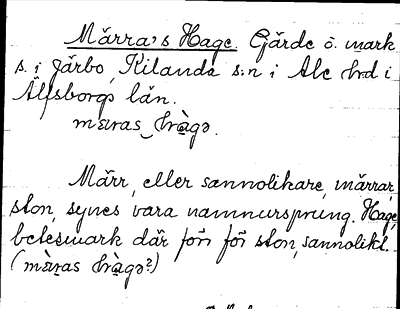 Märra's Hage. Gärde o. mark
s. i Järbo, Kilanda s:n i Ale hrd i
Älfsborgs län.
mæras hràgə.
Märr, eller sannolikare, märrar,
ston, synes vara namnursprung. Hage,
betesmark där förr för ston, sannolikt.
(mæ̀ras hràgə?)